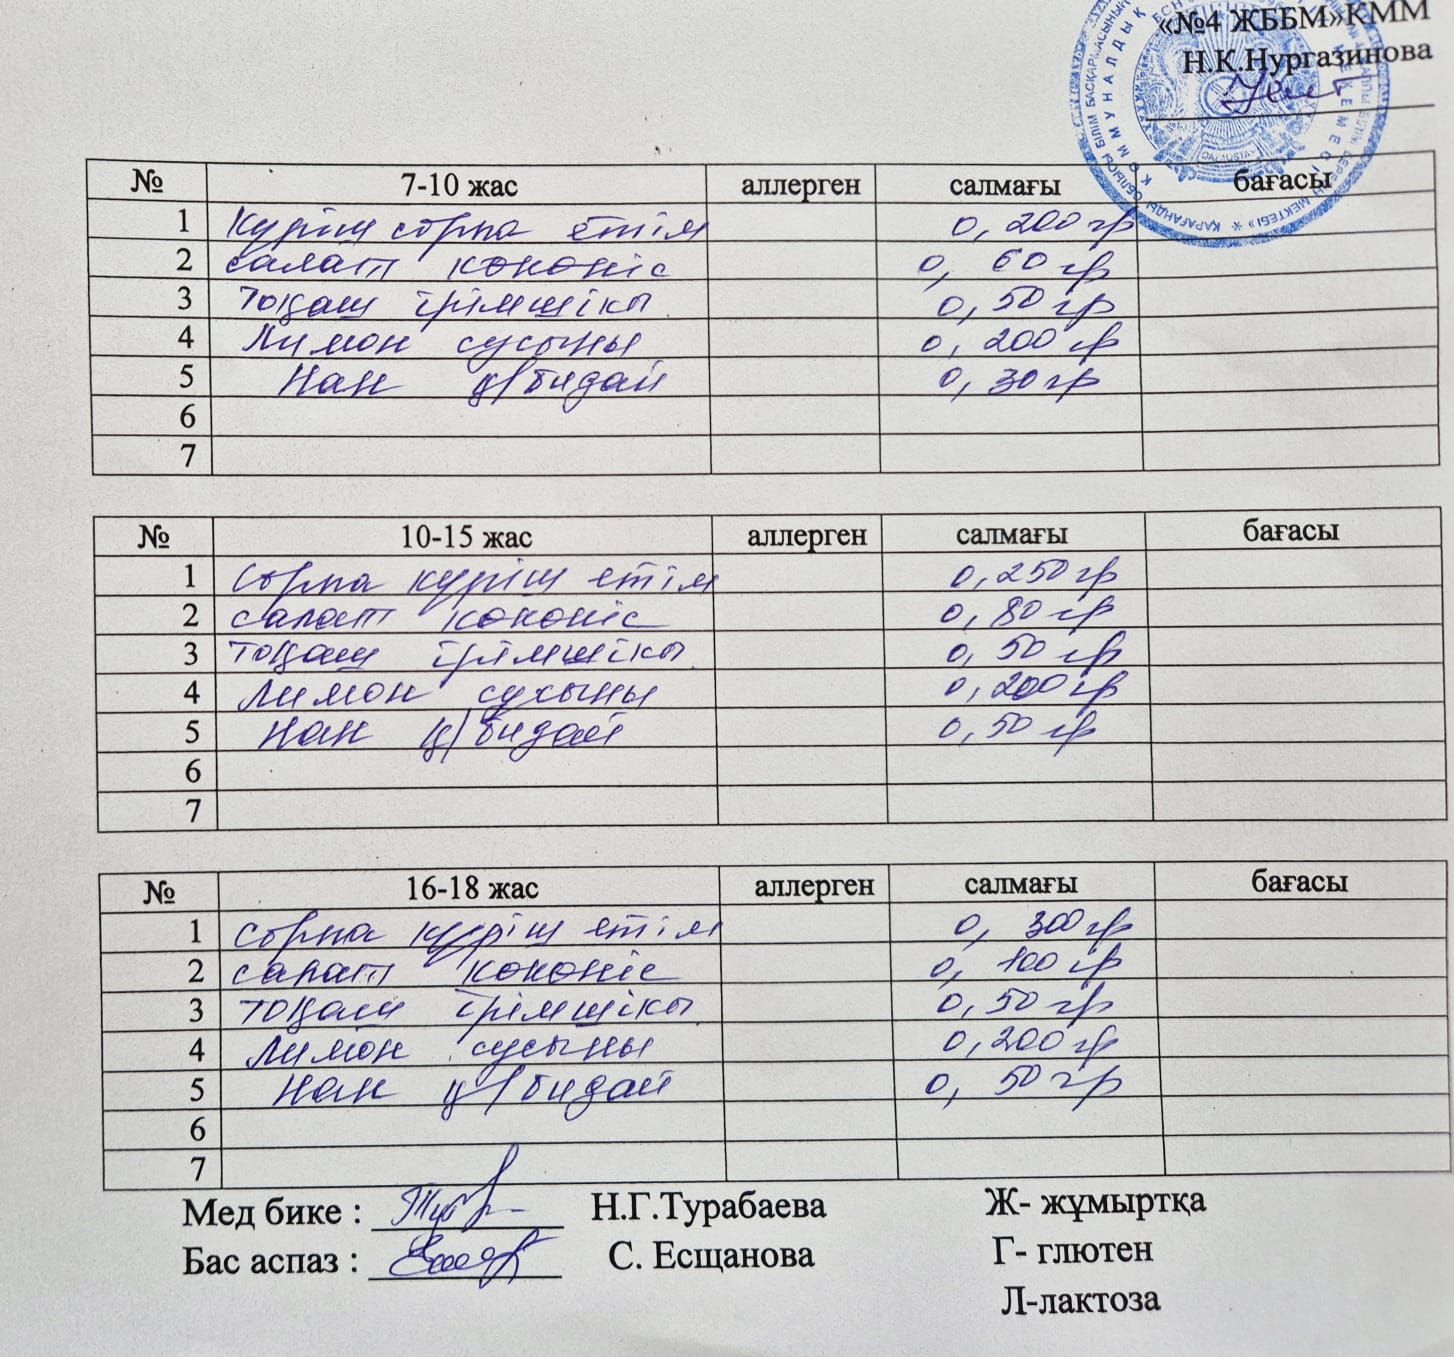 «№4 ЖББМ»КММ
Н.К.Нургазинова
№ 7-10 жас аллерген салмағы бағасы
1 Күріш сорпа етім 0,200 гр
2 салат көкөніс 0, 60 гр
3 тоқаш ірімшікті 0,50 гр
4 Лимон сусыны 0,200 гр
5 Нан қ/бидай 0,30 гр
6
7
№ 10-15 жас аллерген салмағы бағасы
1 Сорпа күріш етім 0,250 гр
2 салат көкөніс 0,80 гр
3 тоқаш ірімшікті 0,50 гр
4 Лимон сусыны 0,200 гр
5 Нан қ/бидай 0,50 гр
6
7
№ 16-18 жас аллерген салмағы бағасы
1 Сорпа күріш етім 0, 300 гр
2 салат көкөніс 0, 100 гр
3 тоқаш ірімшікті 0,50 гр
4 Лимон сусыны 0,200 гр
5 Нан қ/бидай 0, 50 гр
6
7
Мед бике : Н.Г.Турабаева Ж- жұмыртқа
Бас аспаз : С. Есщанова Г- глютен
Л-лактоза